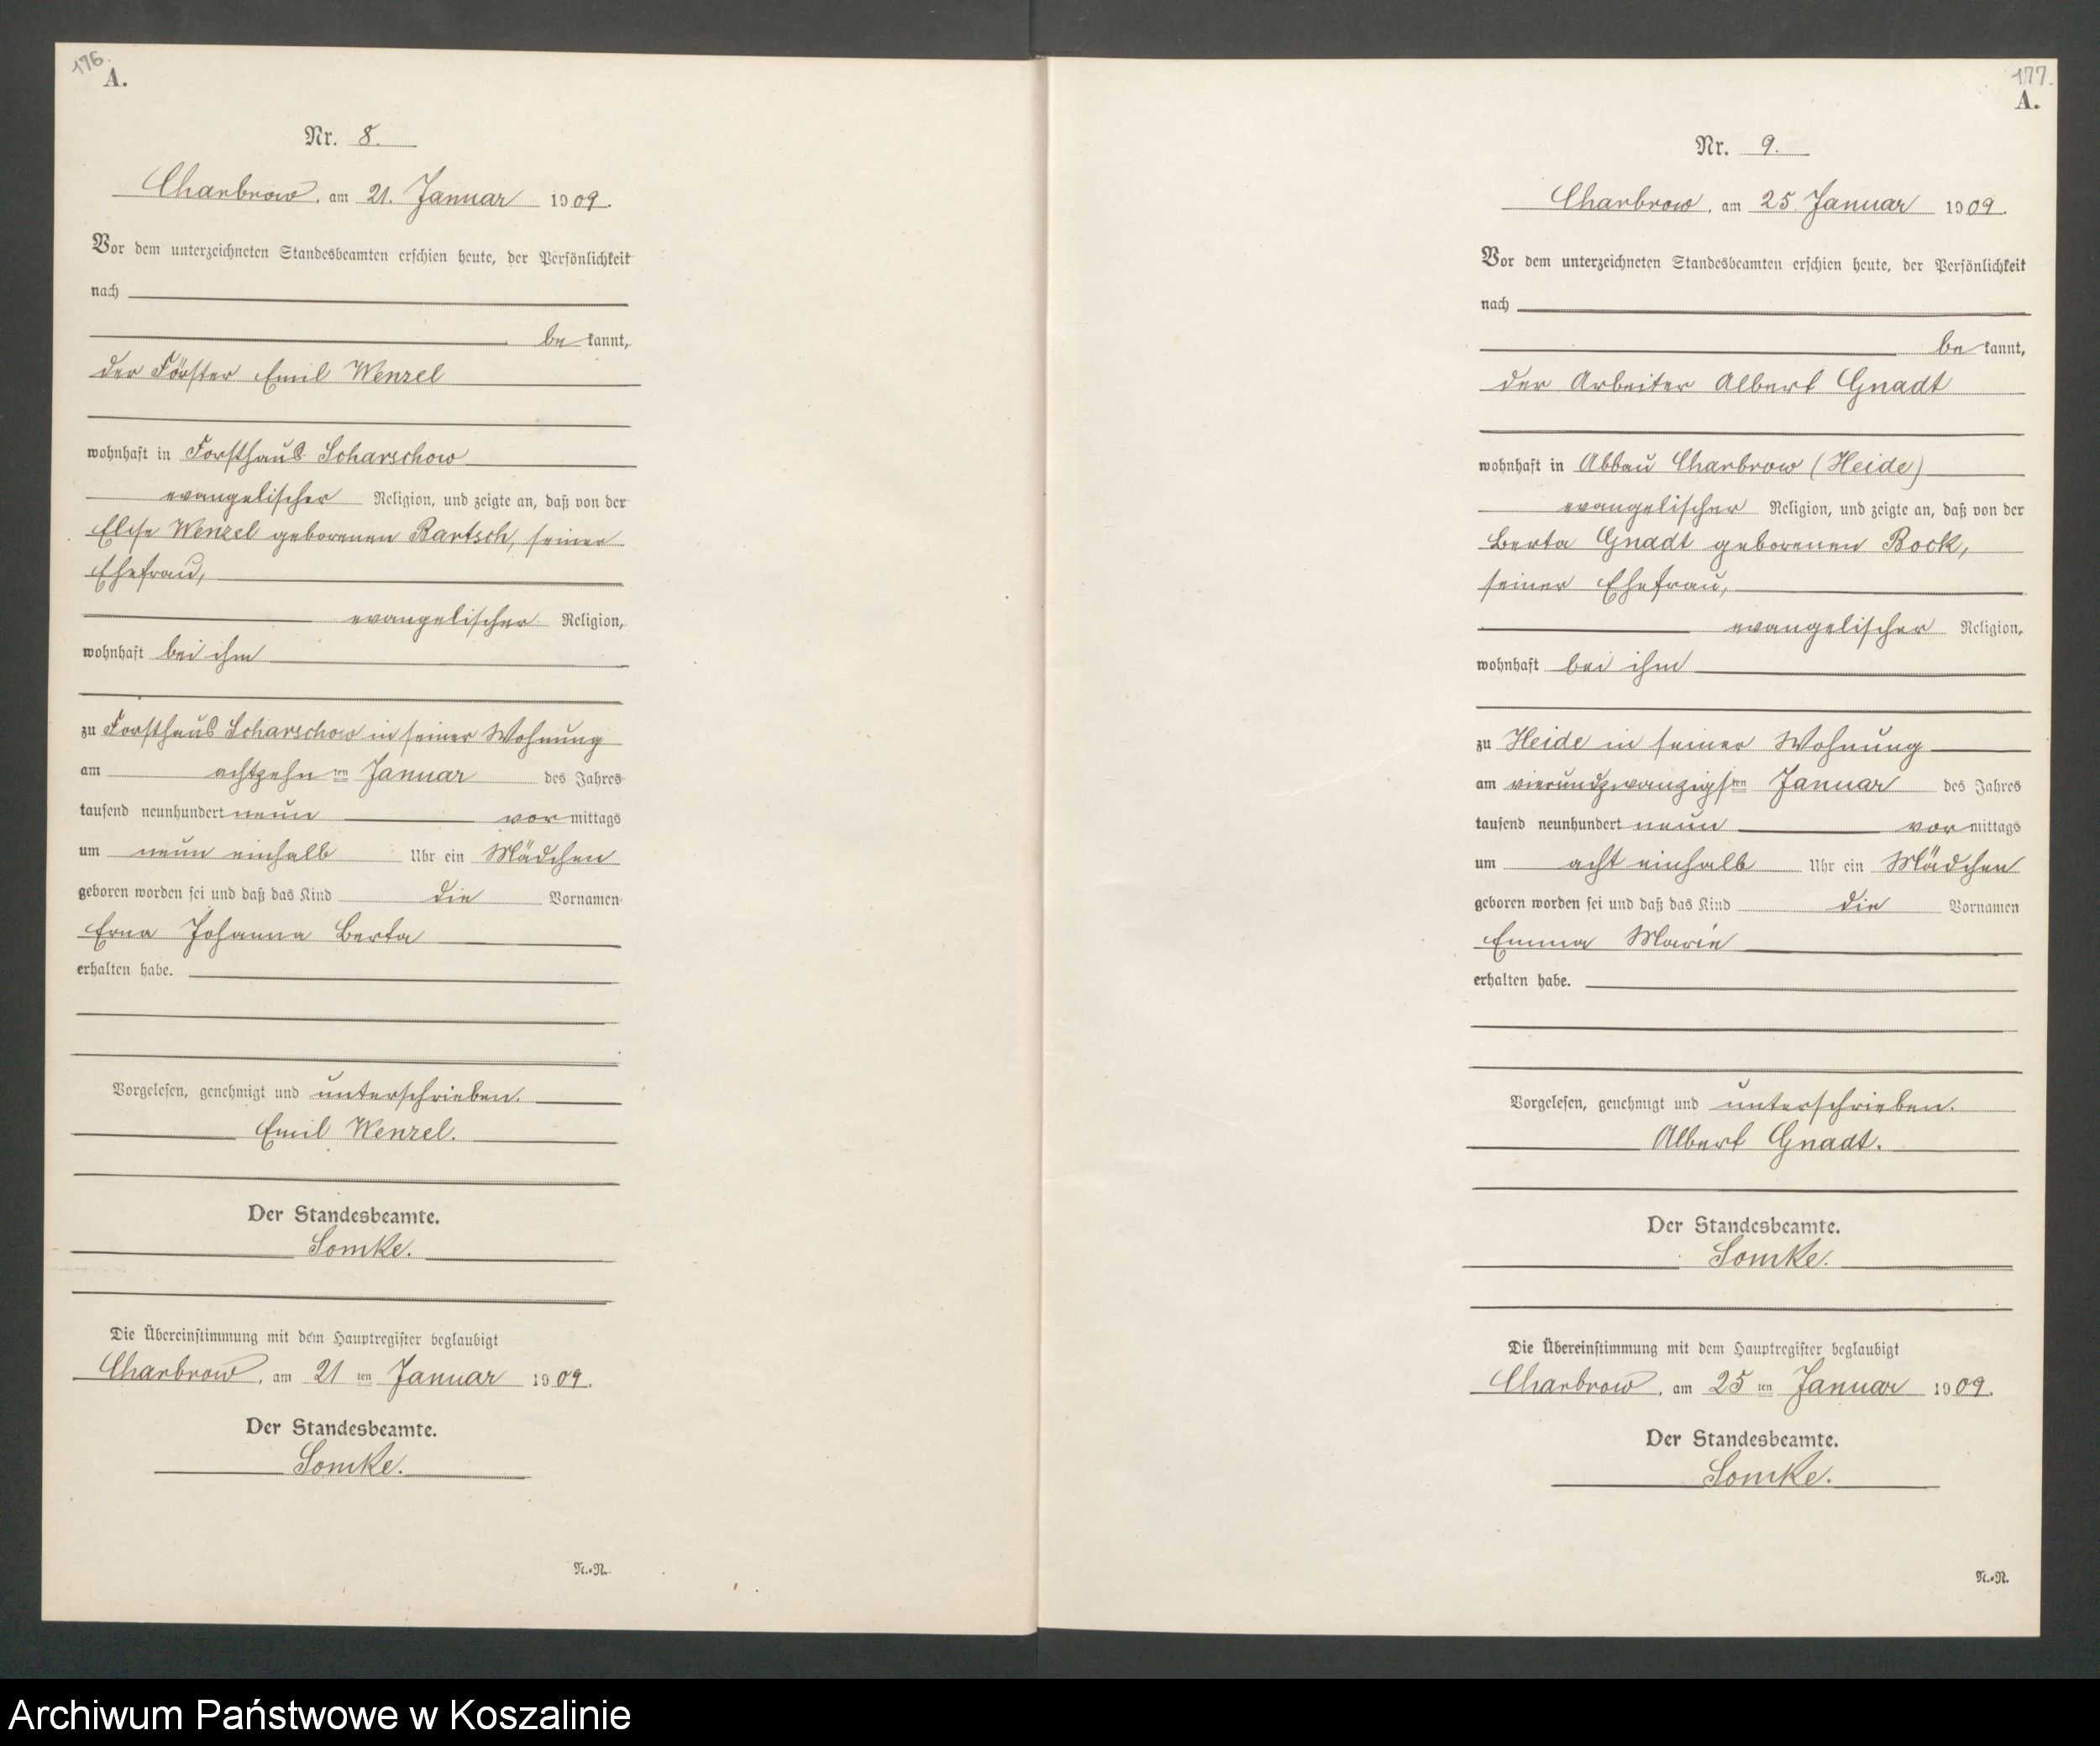 176.
A.
Nr. 8.
Charbrow, am 21. Januar 1909.
Vor dem unterzeichneten Standesbeamten erschien heute, der Persönlichkeit
nach
be kannt,
der Förster Emil Wenzel
wohnhaft in Forsthaus Scharschow
evangelischer Religion, und zeigte an, daß von der
Elise Wenzel geborenen Bartsch, seiner
Ehefrau,
evangelischer Religion,
wohnhaft bei ihm
zu Forsthaus Scharschow in seiner Wohnung
am achtzehn ten Januar des Jahres
tausend neunhundert neun vormittags
um neun einhalb Uhr ein Mädchen
geboren worden sei und daß das Kind die Vornamen
Erna Johanna Berta
erhalten habe.
Vorgelesen, genehmigt und unterschrieben.
Emil Wenzel.
Der Standesbeamte.
Lomke.
Die Übereinstimmung mit dem Hauptregister beglaubigt
Charbrow, am 21 ten Januar 1909.
Der Standesbeamte.
Lomke.
N.-N.
177.
A.
Nr. 9.
Charbrow, am 25. Januar 1909.
Vor dem unterzeichneten Standesbeamten erschien heute, der Persönlichkeit
nach
be kannt,
der Arbeiter Albert Gnadt
wohnhaft in Abbau Charbrow (Heide)
evangelischer Religion, und zeigte an, daß von der
Berta Gnadt geborenen Bock,
seiner Ehefrau,
evangelischer Religion,
wohnhaft bei ihm
zu Heide in seiner Wohnung
am vierundzwanzigsten Januar des Jahres
tausend neunhundert neun vormittags
um acht einhalb Uhr ein Mädchen
geboren worden sei und daß das Kind die Vornamen
Emma Marie
erhalten habe.
Vorgelesen, genehmigt und unterschrieben.
Albert Gnadt.
Der Standesbeamte.
Lomke.
Die Übereinstimmung mit dem Hauptregister beglaubigt
Charbrow, am 25 ten Januar 1909.
Der Standesbeamte.
Lomke.
N.-N.
Archiwum Państwowe w Koszalinie